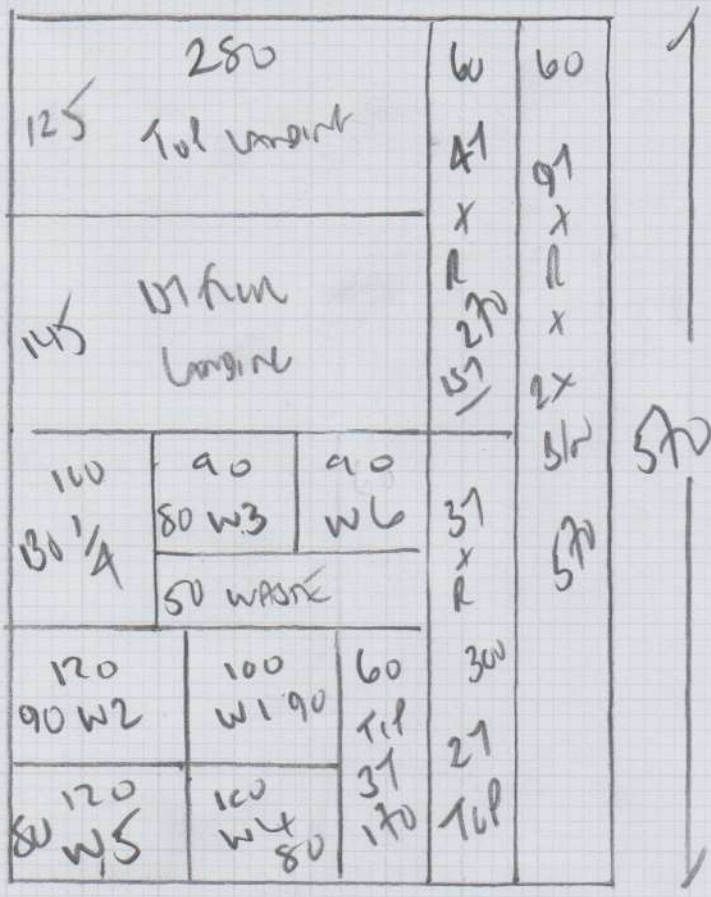 280
125 Top Landing
145 1st Floor
Landing
100
130 1/4
90
80 W3
90
W6
50 WASTE
120
90 W2
100
W1 90
120
80 W5
100
W4
80
60
TOP
3T
170
60
4T
X
R
270
3T
X
R
300
2T
TOP
60
9T
X
R
X
2X
B/W
570
570